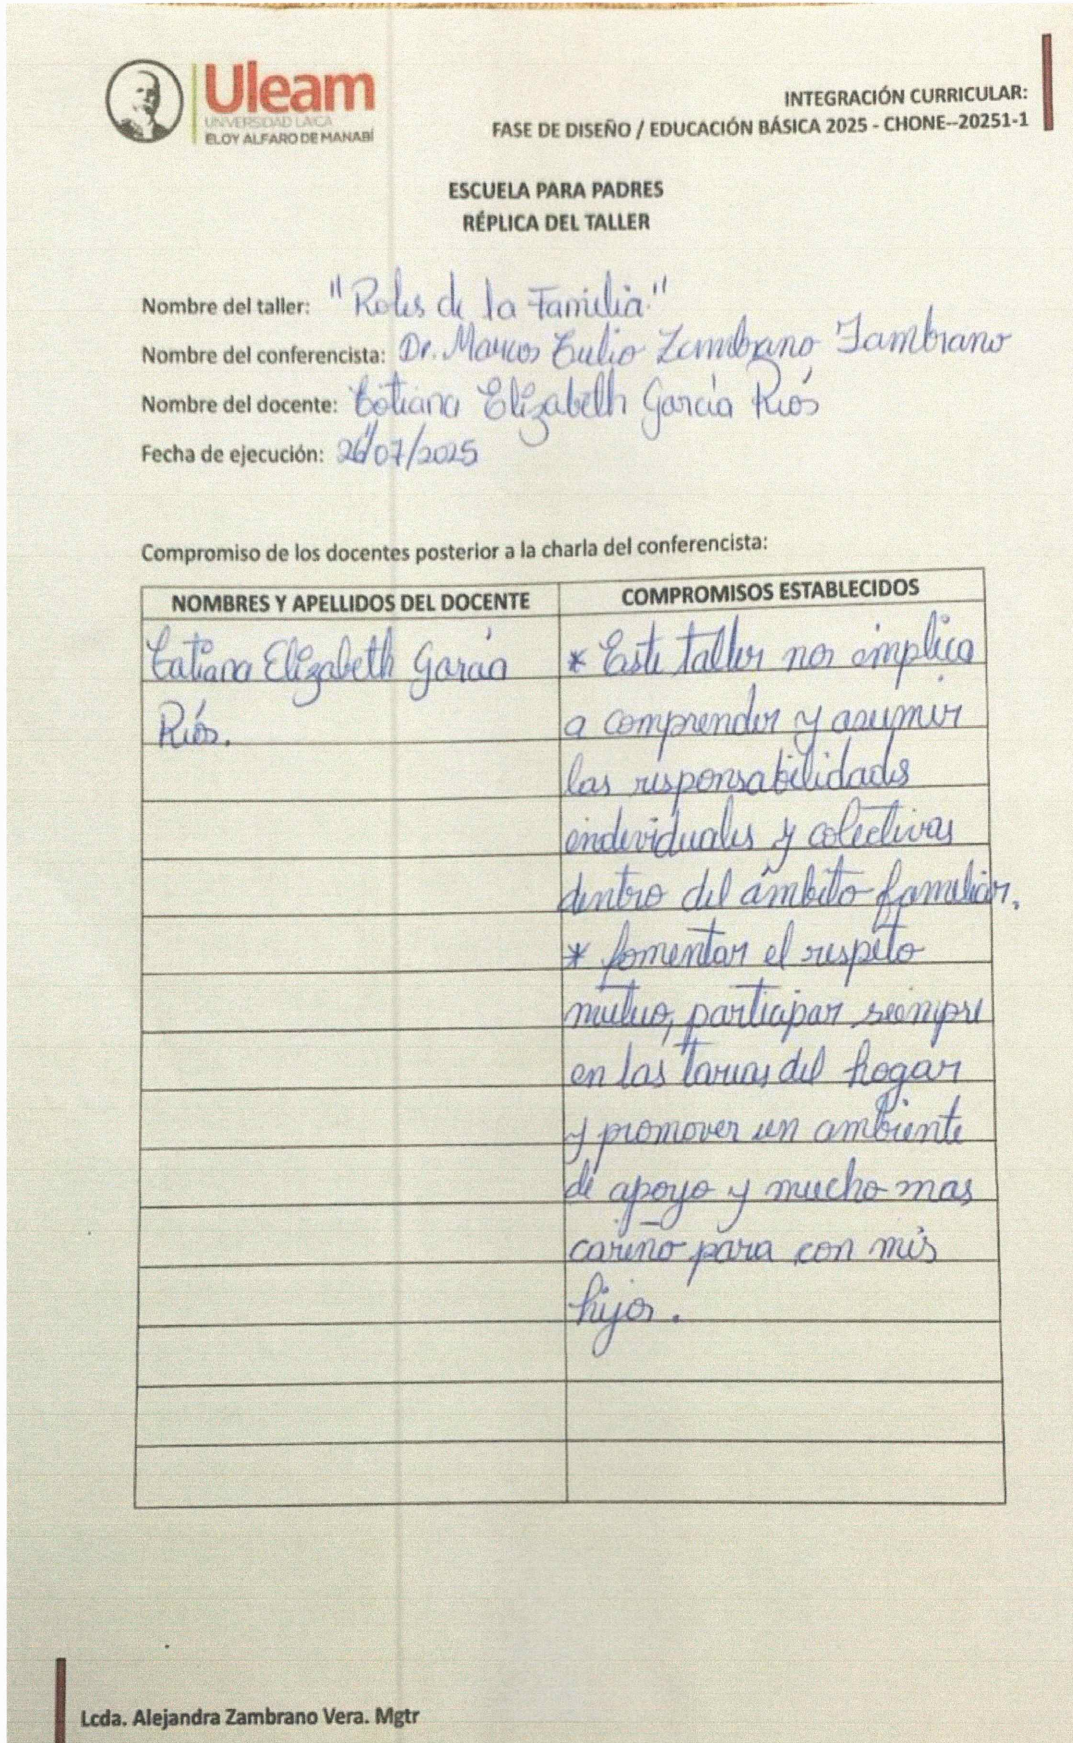 Uleam
UNIVERSIDAD LAICA
ELOY ALFARO DE MANABÍ
INTEGRACIÓN CURRICULAR:
FASE DE DISEÑO / EDUCACIÓN BÁSICA 2025 - CHONE--20251-1
ESCUELA PARA PADRES
RÉPLICA DEL TALLER
Nombre del taller: "Roles de la Familia."
Nombre del conferencista: Dr. Marcos Tulio Zambrano Zambrano
Nombre del docente: Tatiana Elizabeth García Ríos
Fecha de ejecución: 26/07/2025
Compromiso de los docentes posterior a la charla del conferencista:
NOMBRES Y APELLIDOS DEL DOCENTE
COMPROMISOS ESTABLECIDOS
Tatiana Elizabeth García
Ríos.
* Este taller nos implica
a comprender y asumir
las responsabilidades
individuales y colectivas
dentro del ámbito familiar.
* fomentar el respeto
mutuo, participar siempre
en las tareas del hogar
y promover un ambiente
de apoyo y mucho mas
cariño para con mis
hijos.
Lcda. Alejandra Zambrano Vera. Mgtr